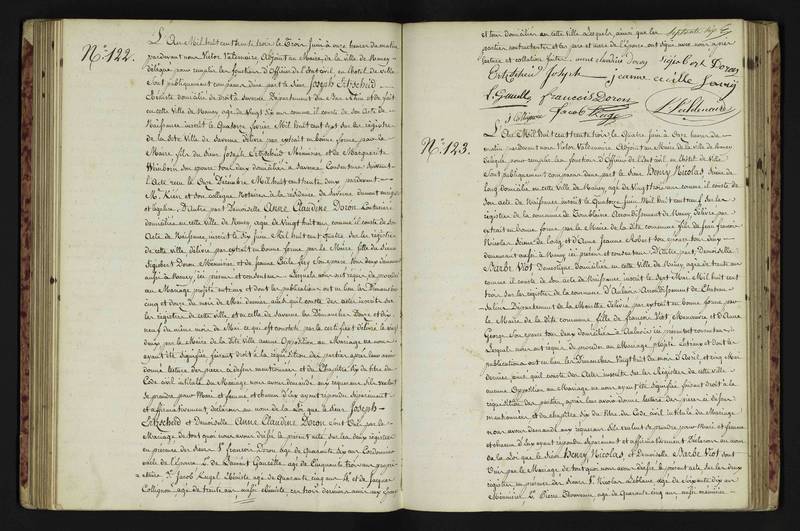 N.º 122.
L'An Mil huit cent trente trois le Trois Juin à onze heures du matin
pardevant nous Victor Valdenaire, Adjoint au Maire de la ville de Nancy
délégué pour remplir les fonctions d'Officier de l'Etat civil, en l'hôtel de Ville
sont publiquement comparus d'une part le Sieur Joseph
Ebéniste domicilié de droit à Saverne Département du Bas Rhin et de fait
en cette Ville de Nancy âgé de Vingt Six ans comme il conste de son Acte de
Naissance inscrit le Quatorze février Mil huit cent sept sur les registres
de la dite Ville de Saverne délivré par extrait en bonne forme par le
Maire, fils du Sieur Joseph Menuisier et de Marguerite
son épouse tous deux domiciliés à Saverne Consentans Suivant
l'Acte reçu le Onze Décembre Mil huit cent trente deux pardevant
M.e et son collègue Notaires à la résidence de Saverne dûment enregistré
et légalisé, D'autre part Demoiselle Anne Claudine Doron Couturière
domiciliée en cette Ville de Nancy, âgée de Vingt huit ans comme il conste de son
Acte de Naissance inscrit le Six Juin Mil huit cent quatre sur les registres
de cette Ville délivré par extrait en bonne forme par le Maire fille du Sieur
Sigisbert Doron Menuisier et de Jeanne Cécile son épouse tous deux demeurant
aussi à Nancy, ici présens et consentans Lesquels nous ont requis de procéder
au Mariage projeté entr'eux et dont les publications ont eu lieu les Dimanches
cinq et douze du mois de Mai dernier ainsi qu'il conste des actes inscrits sur
les registres de cette ville et en celle de Saverne les Dimanches Douze et dix
neuf du même mois de Mai ce qui est constaté par le certificat délivré le vingt
deux par le Maire de la dite Ville aucune Opposition au Mariage ne nous
ayant été signifiée, faisant droit à la réquisition des parties après leur avoir
donné lecture des pièces ci dessus mentionnées et du Chapitre Six du titre du
Code civil intitulé du Mariage nous avons demandé aux requérans s'ils veulent
se prendre pour Mari et femme, et chacun d'eux ayant répondu séparément
et affirmativement, déclarons au nom de la Loi que le Sieur Joseph
et Demoiselle Anne Claudine Doron sont Unis par le
Mariage de tout quoi nous avons dressé le présent acte sur les deux registres
en présence des Sieurs 1.º françois Doron âgé de Quarante six ans Cordonnier
oncle de l'Epouse 2.º âgé de Cinquante trois ans propriétaire
3.º Jacob Ebéniste âgé de Quarante cinq ans & 4.º de Jacques
Collignon, âgé de trente ans, aussi ébéniste, ces trois derniers amis aux époux
et tous domiciliés en cette ville Lesquels, ainsi que les
parties contractantes et les père et mère de l'épouse ont signé avec nous après
lecture et collation faite.
Sigisbert Doron
Joseph
Jeanne cecille
françois Doron
Jacob
J. Collignon
Valdenaire
N.º 123.
L'An Mil huit cent trente trois le Quatre Juin à Onze heures du
matin pardevant nous Victor Valdenaire Adjoint au Maire de la Ville de Nancy
délégué pour remplir les fonctions d'Officier de l'Etat civil, en l'hôtel de Ville
sont publiquement comparus d'une part le Sieur Henry Nicolas, Scieur de
Long domicilié en cette Ville de Nancy, âgé de Vingt trois ans comme il conste de
son acte de Naissance inscrit le Quatre Juin Mil huit cent sur les
registres de la commune de Arrondissement de Nancy délivré par
extrait en bonne forme par le Maire de la dite commune fils de feu françois
Nicolas Scieur de Long et d'Anne Jeanne son épouse tous deux
demeurant aussi à Nancy ici présens et consentans D'autre part, Demoiselle
Barbe Viot Domestique domiciliée en cette Ville de Nancy âgée de trente ans
comme il conste de son acte de Naissance inscrit le Sept Mai Mil huit cent
trois sur les registres de la commune d'Aulnois Arrondissement de Chateau
Salins Département de la Meurthe délivré par extrait en bonne forme par
le Maire de la dite commune fille de françois Viot, Manœuvre et d'Anne
George son épouse tous deux domiciliés à Aulnois ici présens et consentans
Lesquels nous ont requis de procéder au Mariage projeté entr'eux et dont les
publications ont eu lieu les Dimanches Vingt huit du mois d'Avril, et cinq Mai
derniers ainsi qu'il conste des Actes inscrits sur les Registres de cette ville
aucune Opposition au Mariage ne nous ayant été signifiée faisant droit à la
réquisition des parties, après leur avoir donné lecture des pièces ci dessus
mentionnées et du chapitre Six du titre du Code civil intitulé du Mariage
nous avons demandé aux requérans s'ils veulent se prendre pour Mari et femme
et chacun d'eux ayant répondu séparément et affirmativement Déclarons au nom
de la Loi que le Sieur Henry Nicolas, et Demoiselle Barbe Viot sont
Unis par le Mariage de tout quoi nous avons dressé le présent acte sur les deux
registres, en présence des Sieurs 1.º Nicolas âgé de Soixante dix ans
Menuisier, 2.º Pierre âgé de Quarante cinq ans, aussi